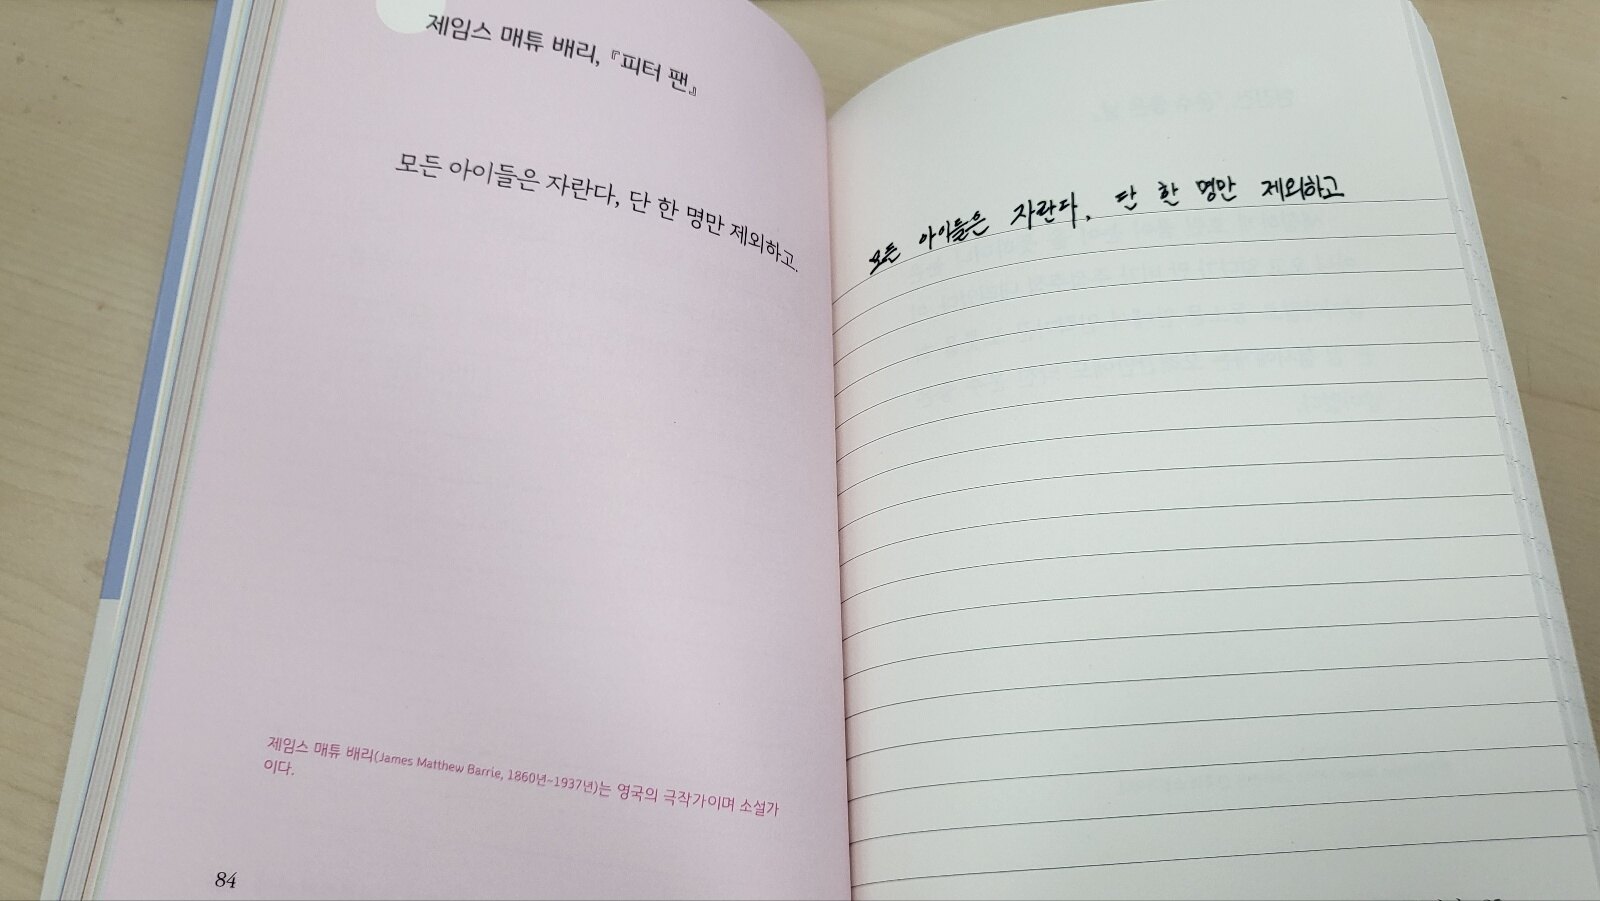 제임스 매튜 배리, 『피터 팬』
모든 아이들은 자란다, 단 한 명만 제외하고.
제임스 매튜 배리(James Matthew Barrie, 1860년~1937년)는 영국의 극작가이며 소설가
이다.
84
모든 아이들은 자란다, 단 한 명만 제외하고